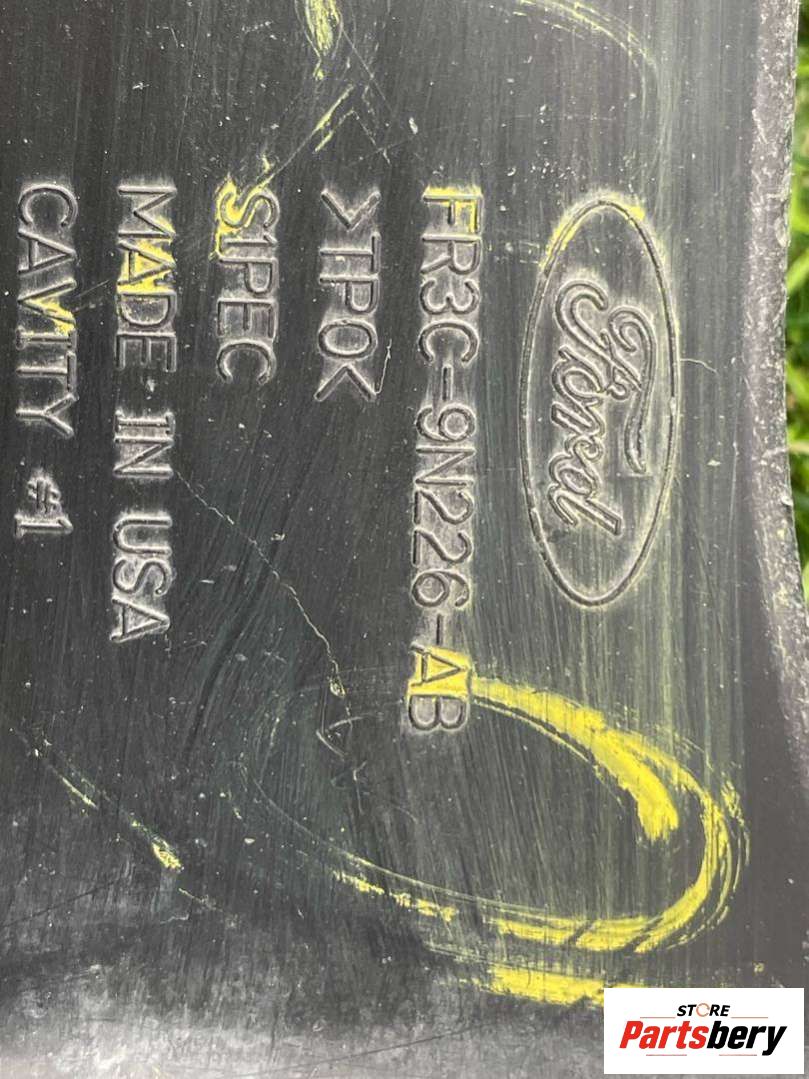 Ford
FR3C-9N226-AB
>TPO<
SIPEC
MADE IN USA
CAVITY #1
STORE
Partsbery